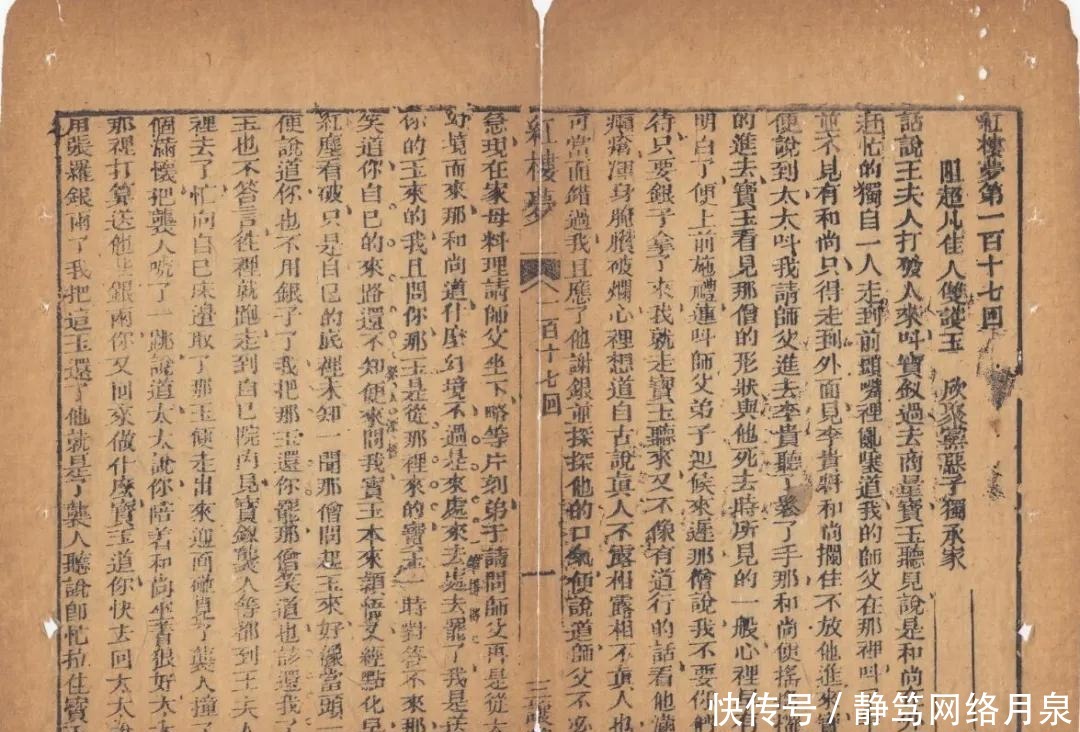 紅樓夢第一百十七回
阻超凡佳人雙護玉　欣聚黨惡子獨承家
話說王夫人打發人來叫寶釵過去商量寶玉聽見說是和尚
趕忙的獨自一人走到前頭嘴裡亂嚷道我的師父在那裡叫
並不見有和尚只得走到外面見李貴將和尚攔住不放他進來
便說到太太叫我請師父進去李貴聽了鬆了手那和尚便搖
的進去寶玉看見那僧的形狀與他死去時所見的一般心裡
明白了便上前施禮連叫師父弟子迎候來遲那僧說我不要你們
待只要銀子拿了來我就走寶玉聽來又不像有道行的話看他
癩瘡渾身腌臢破爛心裡想道自古說真人不露相露相不真人也
可當面錯過我且應了他謝銀並探探他的口氣便說道師父不必
急現在家母料理請師父坐下略等片刻弟子請問師父可是從
幻境而來那和尚道什麼幻境不過是來處來去處去罷了我是送
你的玉來的我且問你那玉是從那裡來的寶玉一時對答不來那
笑道你自己的來路還不知便來問我寶玉本來穎悟又經點化早
紅塵看破只是自己的底裡未知一聞那僧問起玉來好像當頭
便說道你也不用銀子了我把那玉還你罷那僧笑道也該還我了
玉也不答言往裡就跑走到自己院內見寶釵襲人等都到王夫人
裡去了忙向自己床邊取了那玉便走出來迎面碰見了襲人撞
個滿懷把襲人唬了一跳說道太太說你陪著和尚坐着狠好太太
那裡打算送他些銀兩你又回來做什麼寶玉道你快去回太太
用張羅銀兩了我把這玉還了他就是了襲人聽說即忙拉住寶
紅樓夢
一百十七回
一
快传号／静笃网络月泉